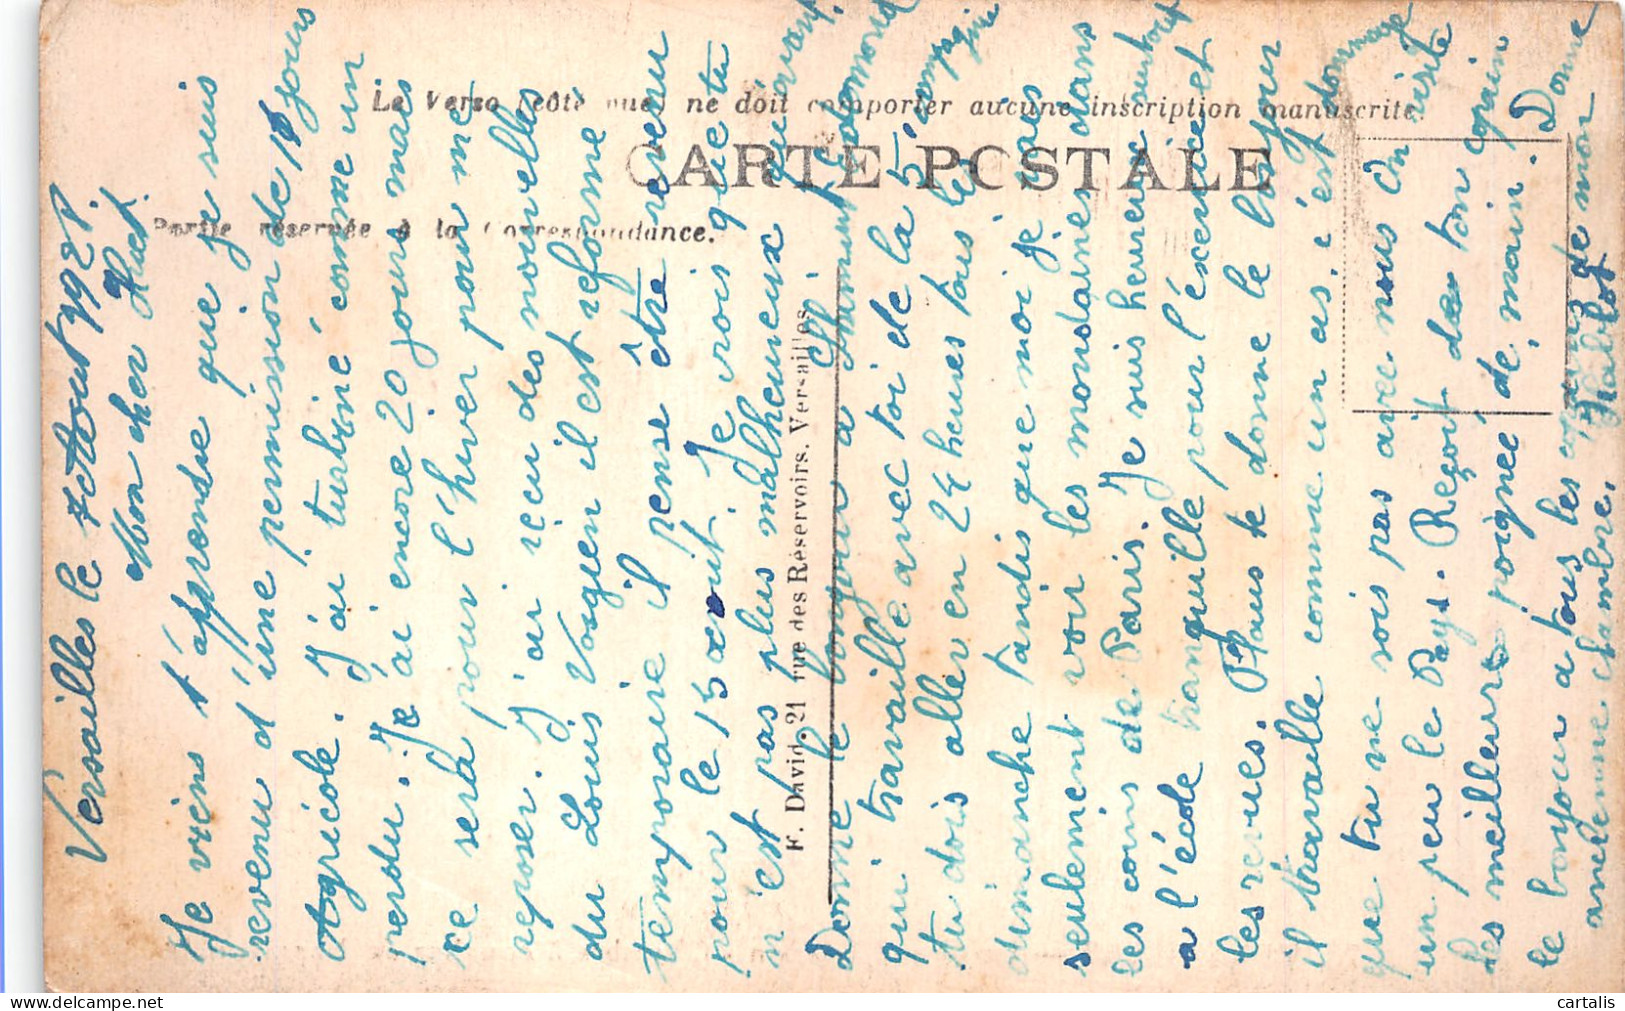 Le Verso (côté vue) ne doit comporter aucune inscription manuscrite
CARTE POSTALE
Partie réservée à la Correspondance.
F. David, 21 rue des Réservoirs. Versailles
Versailles le 7 Aout 192
Mon cher
Je viens t'apprendre que je suis
revenu d'une permission de jours
Agricole. J'ai turbiné comme un
perdu. Je ai encore 20 jours mais
ce sera pour l'hiver pour me
reposer. J'ai reçu des nouvelles
du Louis Vosgien il est reformé
temporaire il pense être revenu
pour le 15 aout. Je vois que tu
n'est pas plus malheureux qu'avant.
Donne le bonjour a
qui travaille avec toi de la 5e
tu dois aller en 24 heures tous les
dimanche tandis que moi je vais
seulement voir les mondaines dans
les coins de Paris. Je suis heureux
a l'école tranquille pour l'éxercice et
les revues. Plaus te donne le bonjour
il travaille comme un as, c'est dommage
que tu ne sois pas avec nous on visite
un peu le Pays. Reçoit de ton copain
les meilleures poignée de main. Donne
le bonjour a tous les copains de mon
ancienne chambre.
cartalis